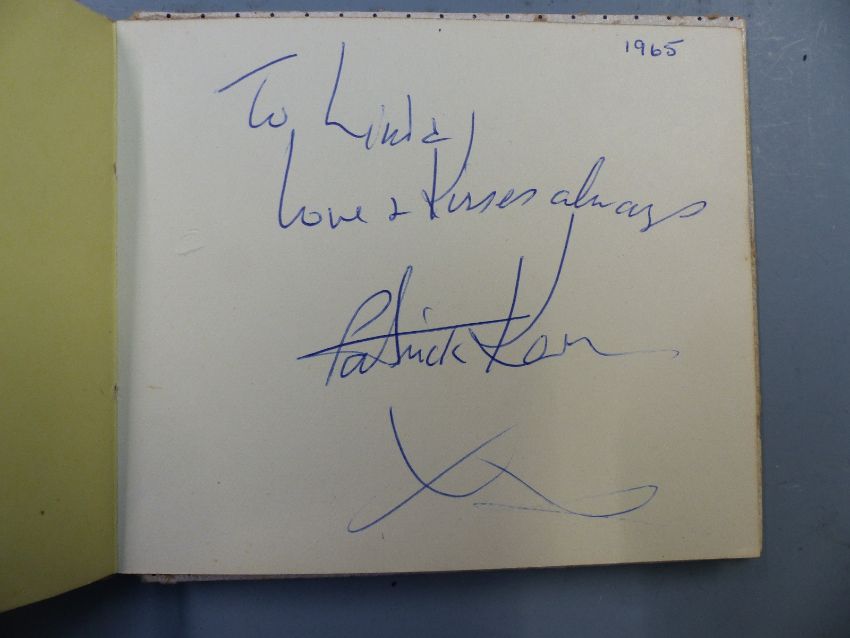 1965
To Linda,
Love & Kisses always
Patrick Kerr
X